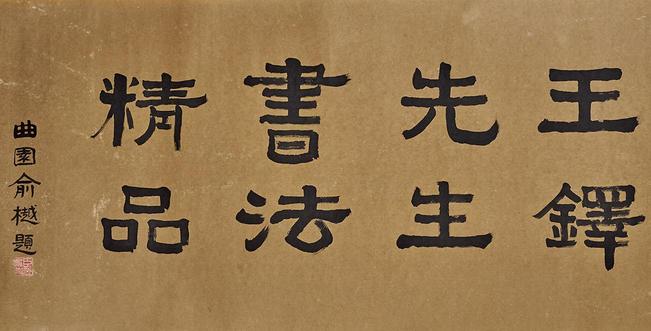 王鐸
先生
書法
精品
曲園俞樾題